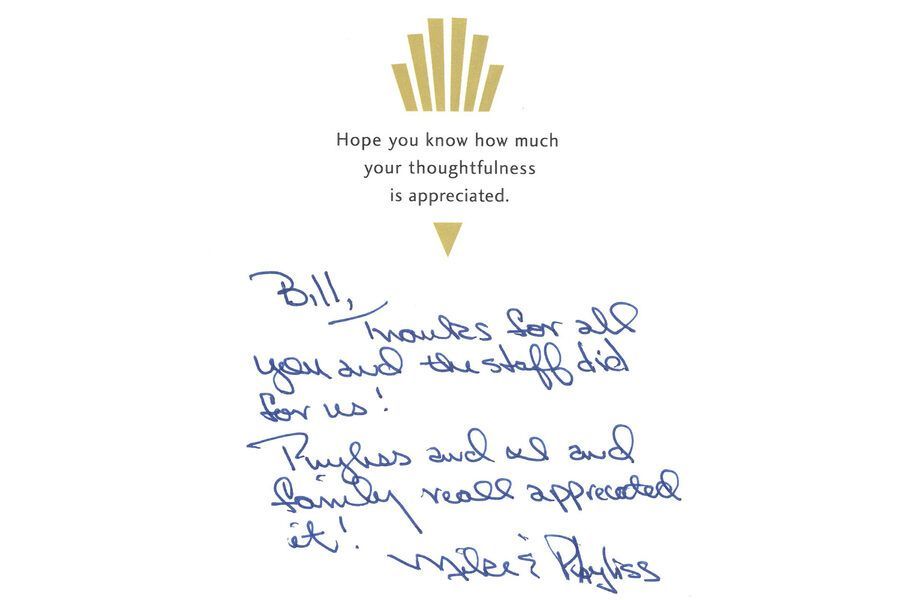 Hope you know how much
your thoughtfulness
is appreciated.
Bill,
Thanks for all
you and the staff did
for us!
Phyliss and I and
family reall appreciated
it!
Mike & Phyliss